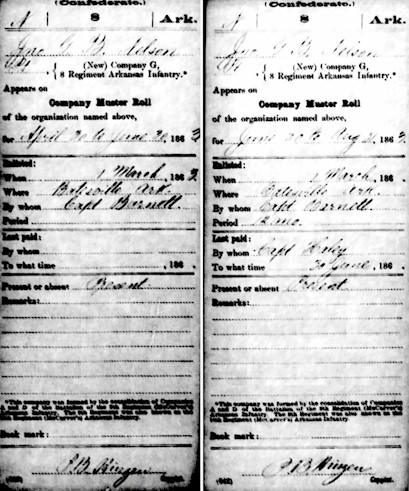 (Confederate.)
N 8 Ark.
Jno. G. B. Nelson
(New) Company G,
8 Regiment Arkansas Infantry.*
Appears on
Company Muster Roll
of the organization named above,
for April 30 to June 30, 1863
Enlisted:
When 1 March, 186
Where Batesville Ark.
By whom Capt Barnett.
Period
Last paid:
By whom
To what time , 186 .
Present or absent Present
Remarks:
*This company was formed by the consolidation of Companies
A and D of the Battalion of the 8th Regiment (McCarver's) Arkansas
Infantry. The 8th Regiment was also known as
14th (McCarver's) Arkansas Infantry.
Book mark:
(642) Copyist.
(Confederate.)
N 8 Ark.
Jno. G. B. Nelson
(New) Company G,
8 Regiment Arkansas Infantry.*
Appears on
Company Muster Roll
of the organization named above,
for June 30 to Aug 31, 1863
Enlisted:
When 1 March, 186
Where Batesville Ark.
By whom Capt Barnett.
Period
Last paid:
By whom Capt
To what time 30 June, 186 .
Present or absent Present
Remarks:
*This company was formed by the consolidation of Companies
A and D of the Battalion of the 8th Regiment (McCarver's) Arkansas
Infantry. The 8th Regiment was also known as
14th (McCarver's) Arkansas Infantry.
Book mark:
(642) Copyist.